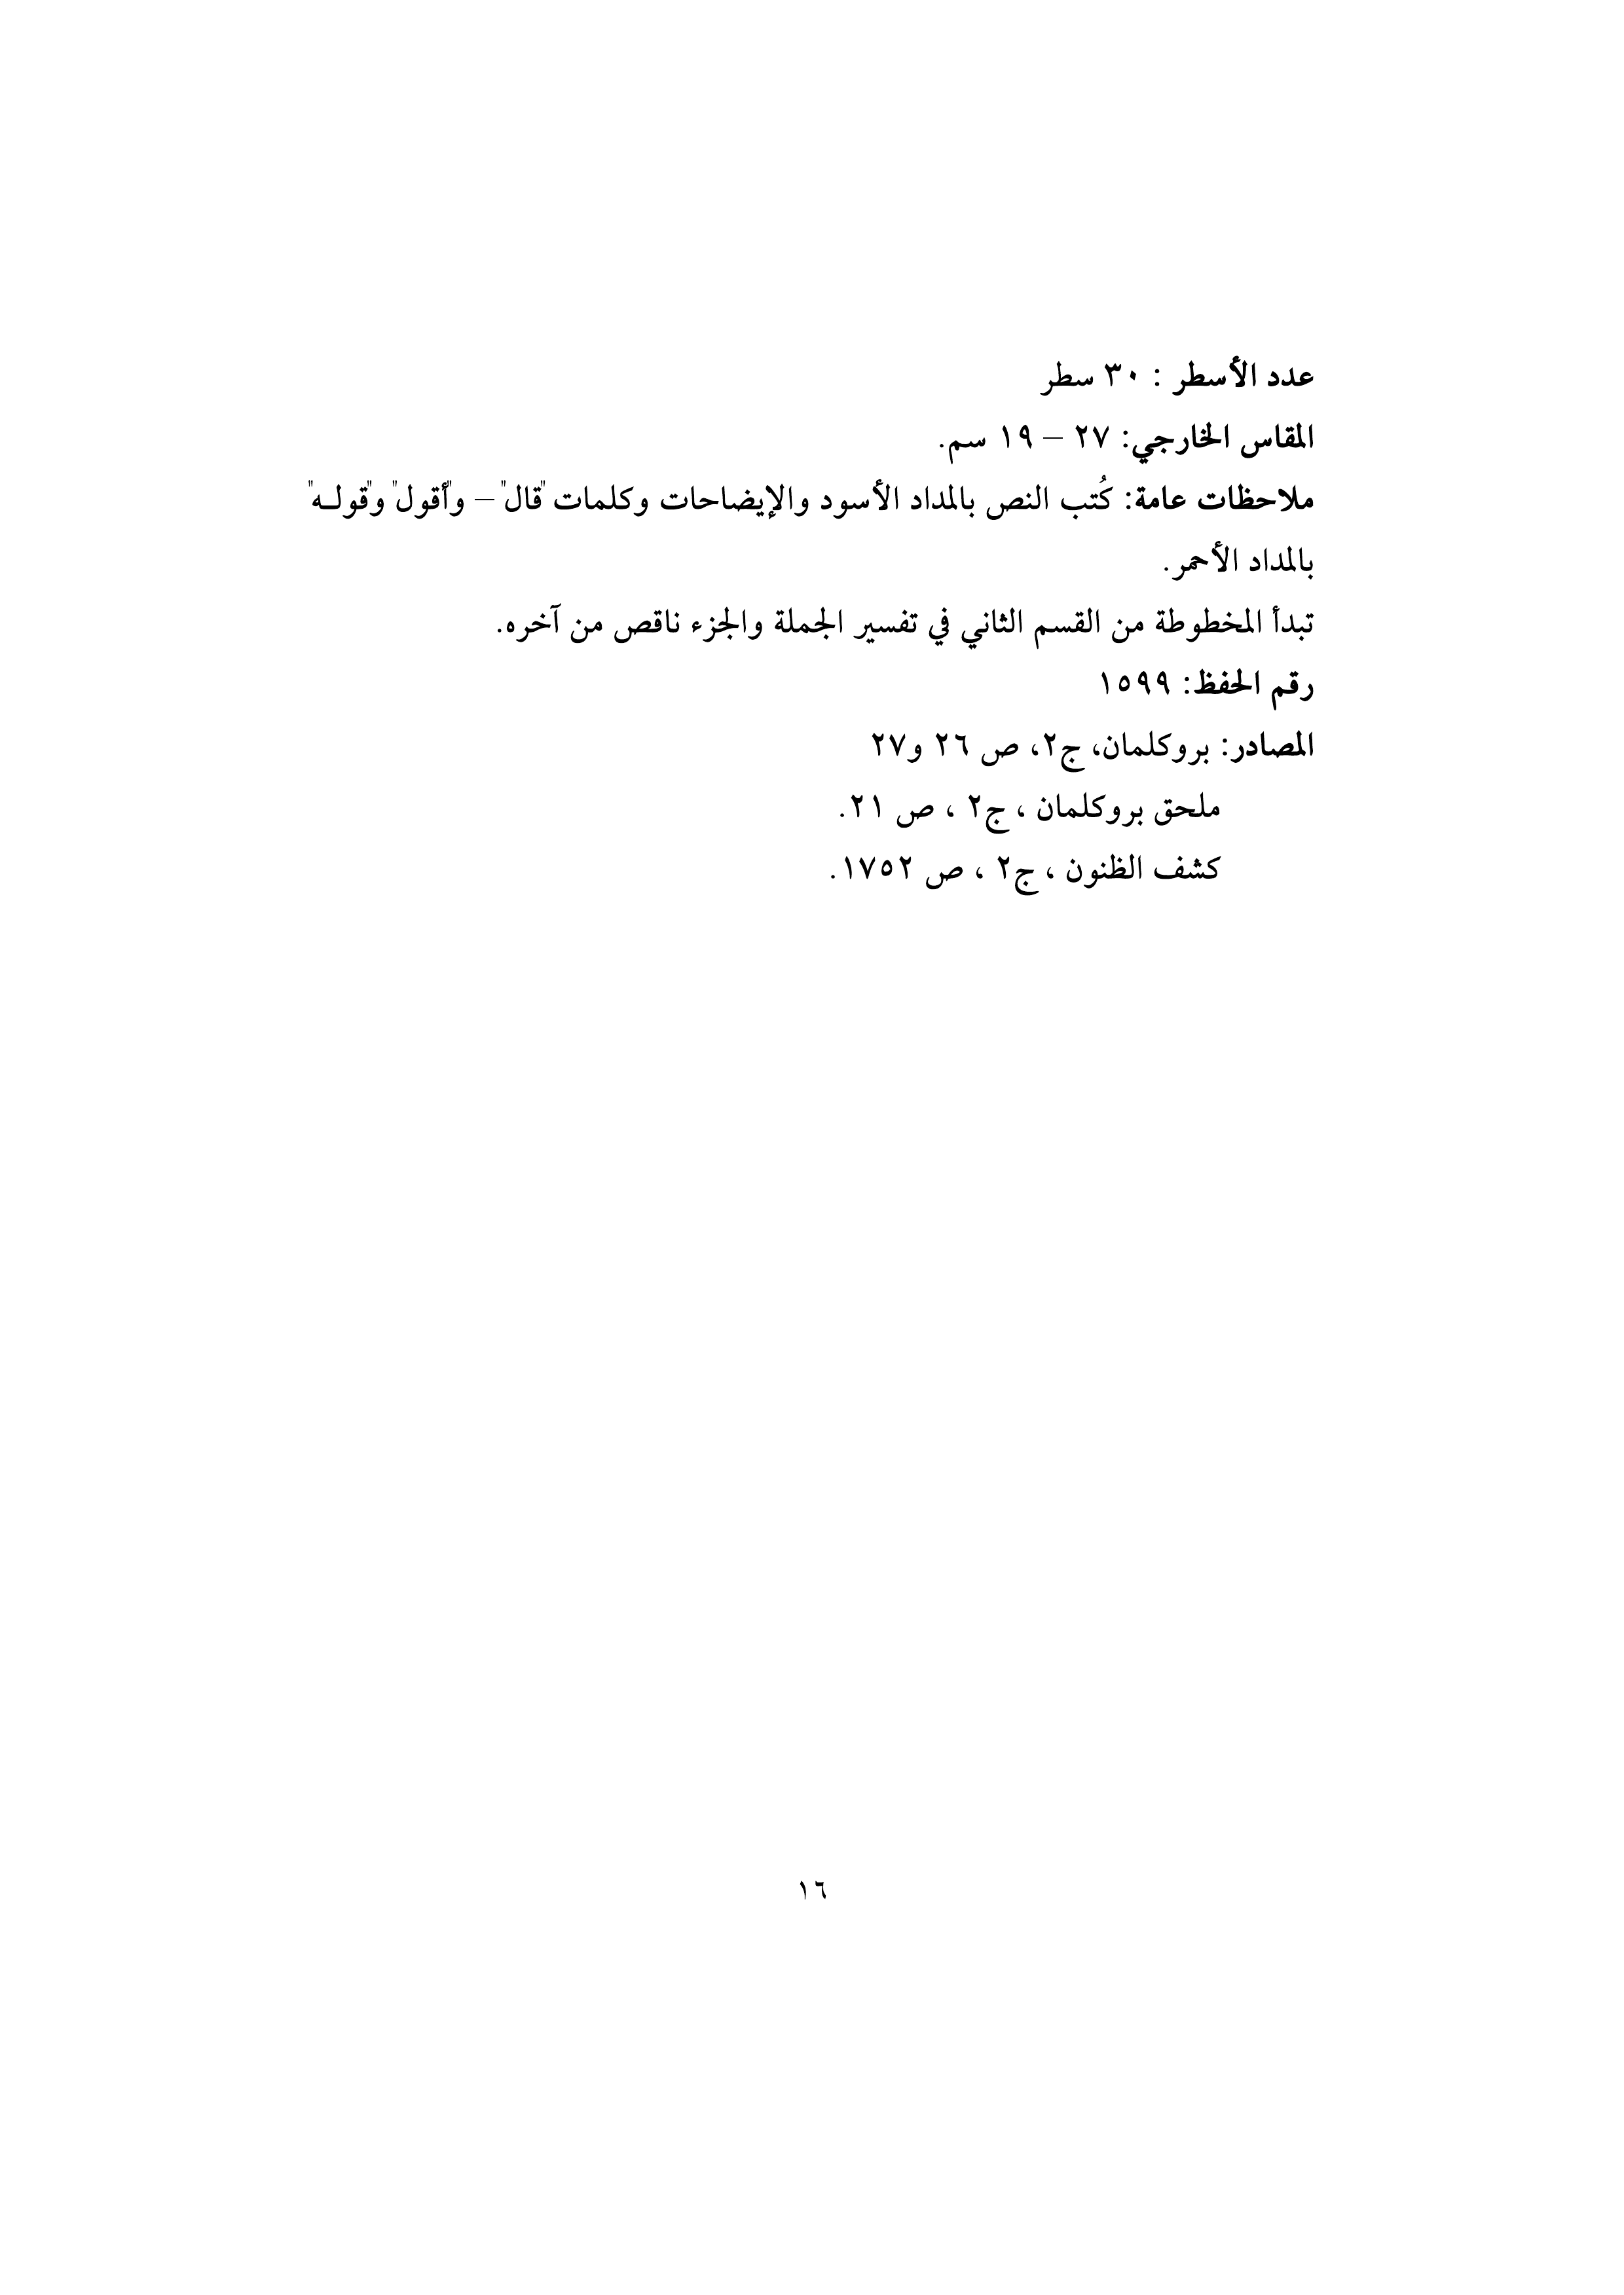 عدد الأسطر : ٣٠ سطر
المقاس الخارجي: ٢٧ – ١٩ سم.
ملاحظات عامة: كُتب النص بالمداد الأسود والإيضاحات وكلمات "قال" – و"أقول" و"قولـه"
بالمداد الأحمر.
تبدأ المخطوطة من القسم الثاني في تفسير الجملة والجزء ناقص من آخره.
رقم الحفظ: ١٥٩٩
المصادر: بروكلمان، ج٢، ص ٢٦ و٢٧
ملحق بروكلمان ، ج٢ ، ص ٢١.
كشف الظنون ، ج٢ ، ص ١٧٥٢.
١٦